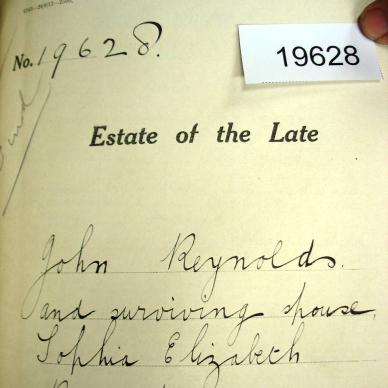 No. 19628.
19628
Estate of the Late
John Reynolds.
and surviving spouse,
Sophia Elizabeth